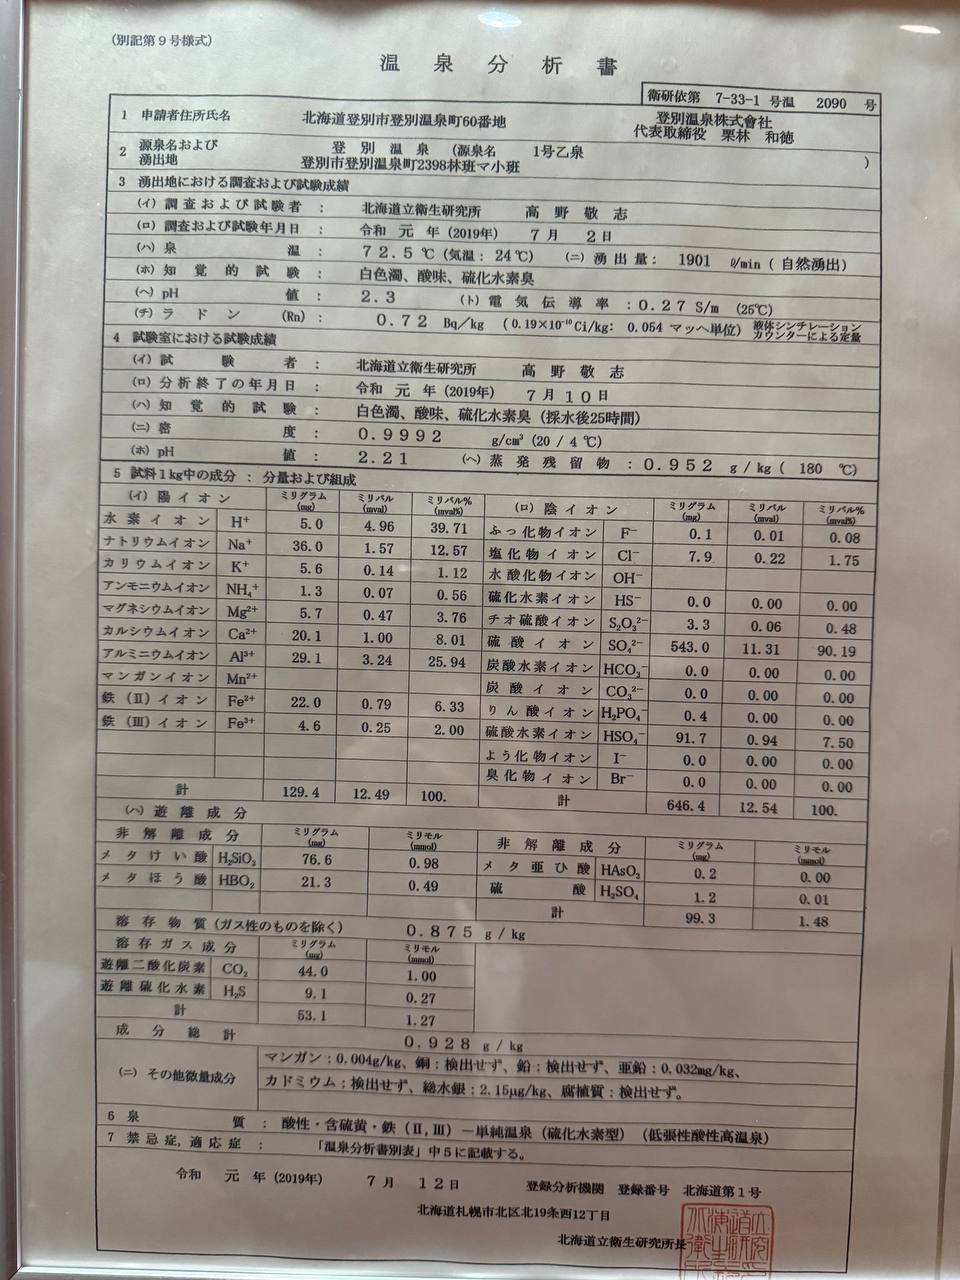 (別記第9号様式)
温泉分析書
衛研依第 7-33-1 号温 2090 号
1 申請者住所氏名 北海道登別市登別温泉町60番地 登別温泉株式會社
代表取締役 栗林 和徳
2 源泉名および 登別温泉 (源泉名 1号乙泉
湧出地 登別市登別温泉町2398林班マ小班 )
3 湧出地における調査および試験成績
(イ) 調査および試験者 : 北海道立衛生研究所 高野敬志
(ロ) 調査および試験年月日 : 令和 元 年 (2019年) 7月 2日
(ハ) 泉温 : 72.5 ℃ (気温: 24℃) (ニ) 湧出量: 1901 ℓ/min ( 自然湧出)
(ホ) 知覚的試験 : 白色濁、酸味、硫化水素臭
(ヘ) pH値 : 2.3 (ト) 電気伝導率 : 0.27 S/m (25℃)
(チ) ラドン (Rn) : 0.72 Bq/kg (0.19×10⁻¹⁰Ci/kg: 0.054 マッヘ単位) 液体シンチレーション
カウンターによる定量
4 試験室における試験成績
(イ) 試験者 : 北海道立衛生研究所 高野敬志
(ロ) 分析終了の年月日 : 令和 元 年 (2019年) 7月10日
(ハ) 知覚的試験 : 白色濁、酸味、硫化水素臭 (採水後25時間)
(ニ) 密度 : 0.9992 g/cm³ (20 / 4 ℃)
(ホ) pH値 : 2.21 (ヘ) 蒸発残留物 : 0.952 g / kg ( 180 ℃)
5 試料1kg中の成分 : 分量および組成
(イ) 陽イオン ミリグラム (mg) ミリバル (mval) ミリバル% (mval%) (ロ) 陰イオン ミリグラム (mg) ミリバル (mval) ミリバル% (mval%)
水素イオン H⁺ 5.0 4.96 39.71 ふっ化物イオン F⁻ 0.1 0.01 0.08
ナトリウムイオン Na⁺ 36.0 1.57 12.57 塩化物イオン Cl⁻ 7.9 0.22 1.75
カリウムイオン K⁺ 5.6 0.14 1.12 水酸化物イオン OH⁻
アンモニウムイオン NH₄⁺ 1.3 0.07 0.56 硫化水素イオン HS⁻ 0.0 0.00 0.00
マグネシウムイオン Mg²⁺ 5.7 0.47 3.76 チオ硫酸イオン S₂O₃²⁻ 3.3 0.06 0.48
カルシウムイオン Ca²⁺ 20.1 1.00 8.01 硫酸イオン SO₄²⁻ 543.0 11.31 90.19
アルミニウムイオン Al³⁺ 29.1 3.24 25.94 炭酸水素イオン HCO₃⁻ 0.0 0.00 0.00
マンガンイオン Mn²⁺ 炭酸イオン CO₃²⁻ 0.0 0.00 0.00
鉄 (Ⅱ) イオン Fe²⁺ 22.0 0.79 6.33 りん酸イオン H₂PO₄⁻ 0.4 0.00 0.00
鉄 (Ⅲ) イオン Fe³⁺ 4.6 0.25 2.00 硫酸水素イオン HSO₄⁻ 91.7 0.94 7.50
よう化物イオン I⁻ 0.0 0.00 0.00
臭化物イオン Br⁻ 0.0 0.00 0.00
計 129.4 12.49 100. 計 646.4 12.54 100.
(ハ) 遊離成分
非解離成分 ミリグラム (mg) ミリモル (mmol) 非解離成分 ミリグラム (mg) ミリモル (mmol)
メタけい酸 H₂SiO₃ 76.6 0.98 メタ亜ひ酸 HAsO₂ 0.2 0.00
メタほう酸 HBO₂ 21.3 0.49 硫酸 H₂SO₄ 1.2 0.01
計 99.3 1.48
溶存物質 (ガス性のものを除く) 0.875 g / kg
溶存ガス成分 ミリグラム (mg) ミリモル (mmol)
遊離二酸化炭素 CO₂ 44.0 1.00
遊離硫化水素 H₂S 9.1 0.27
計 53.1 1.27
成分総計 0.928 g / kg
(ニ) その他微量成分 マンガン : 0.004g/kg、銅 : 検出せず、鉛 : 検出せず、亜鉛 : 0.032mg/kg、
カドミウム : 検出せず、総水銀 : 2.15μg/kg、腐植質 : 検出せず。
6 泉質 : 酸性・含硫黄・鉄 (Ⅱ,Ⅲ) −単純温泉 (硫化水素型) (低張性酸性高温泉)
7 禁忌症,適応症 : 「温泉分析書別表」中5に記載する。
令和 元 年 (2019年) 7月 12日 登録分析機関 登録番号 北海道第1号
北海道札幌市北区北19条西12丁目
北海道立衛生研究所長